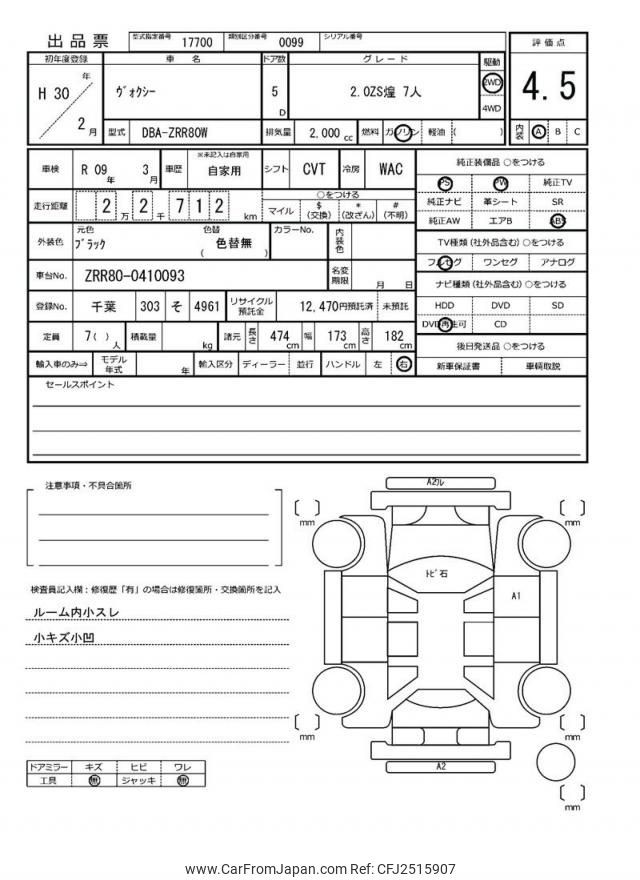 出品票
型式指定番号 17700 類別区分番号 0099 シリアル番号
評価点
4.5
内装 A B C
初年度登録 車名 ドア数 グレード 駆動
H 30 年 2 月
ヴォクシー 5 D 2.0ZS煌 7人 2WD
4WD
型式 DBA-ZRR80W 排気量 2,000 cc 燃料 ガソリン 軽油 ( )
車検 R 09 年 3 月 車歴 ※未記入は自家用 自家用 シフト CVT 冷房 WAC
走行距離 2 2 万 7 千 1 2 km
○をつける
マイル $ (交換) * (改ざん) # (不明)
外装色 元色 ブラック 色替 ( 色替無 ) カラーNo. 内装色
車台No. ZRR80-0410093 名変期限 月 日
登録No. 千葉 303 そ 4961 リサイクル預託金 12,470円預託済 未預託
定員 7( ) 人 積載量 kg 諸元 長さ 474 cm 幅 173 cm 高さ 182 cm
輸入車のみ⇒ モデル年式 年 輸入区分 ディーラー 並行 ハンドル 左 右
純正装備品 ○をつける
PS PW 純正TV
純正ナビ 革シート SR
純正AW エアB ABS
TV種類 (社外品含む) ○をつける
フルセグ ワンセグ アナログ
ナビ種類 (社外品含む) ○をつける
HDD DVD SD
DVD再生可 CD
後日発送品 ○をつける
新車保証書 車輌取説
セールスポイント
注意事項・不具合箇所
検査員記入欄：修復歴「有」の場合は修復箇所・交換箇所を記入
ルーム内小スレ
小キズ小凹
ドアミラー キズ ヒビ ワレ
工具 無 ジャッキ 無
A2ﾂﾙ
[ ] mm
[ ] mm
ﾄﾋﾞ石
A1
[ ] mm
[ ] mm
A2
[ ] mm
www.CarFromJapan.com Ref: CFJ2515907